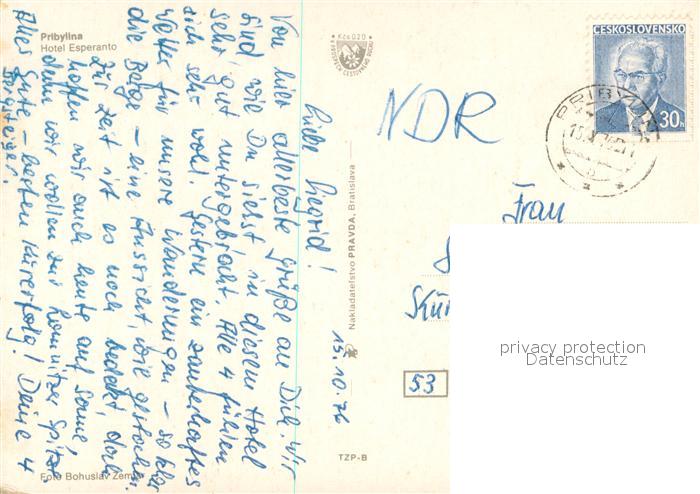 Pribylina
Hotel Esperanto
Kčs 0,20
15.10.76
Liebe Sigrid!
Von hier allerbeste Grüße an Dich, wir
sind, wie Du siehst in diesem Hotel
sehr gut untergebracht. Alle 4 fühlen
sich sehr wohl. Gestern ein zauberhaftes
Wetter für unsere Wanderungen – so klar
die Berge – eine Aussicht, wie gestochen.
Zur Zeit ist es noch bedeckt, doch
hoffen wir auch heute auf Sonne,
denn wir wollen zur Lomnitzer Spitze.
Alles Gute, – besten Kurerfolg! Deine 4
Foto Bohuslav Zemja
Nakladateľstvo PRAVDA, Bratislava
TZP-B
ČESKOSLOVENSKO
30h
PRIBYLINA
NDR
Frau
53
privacy protection
Datenschutz